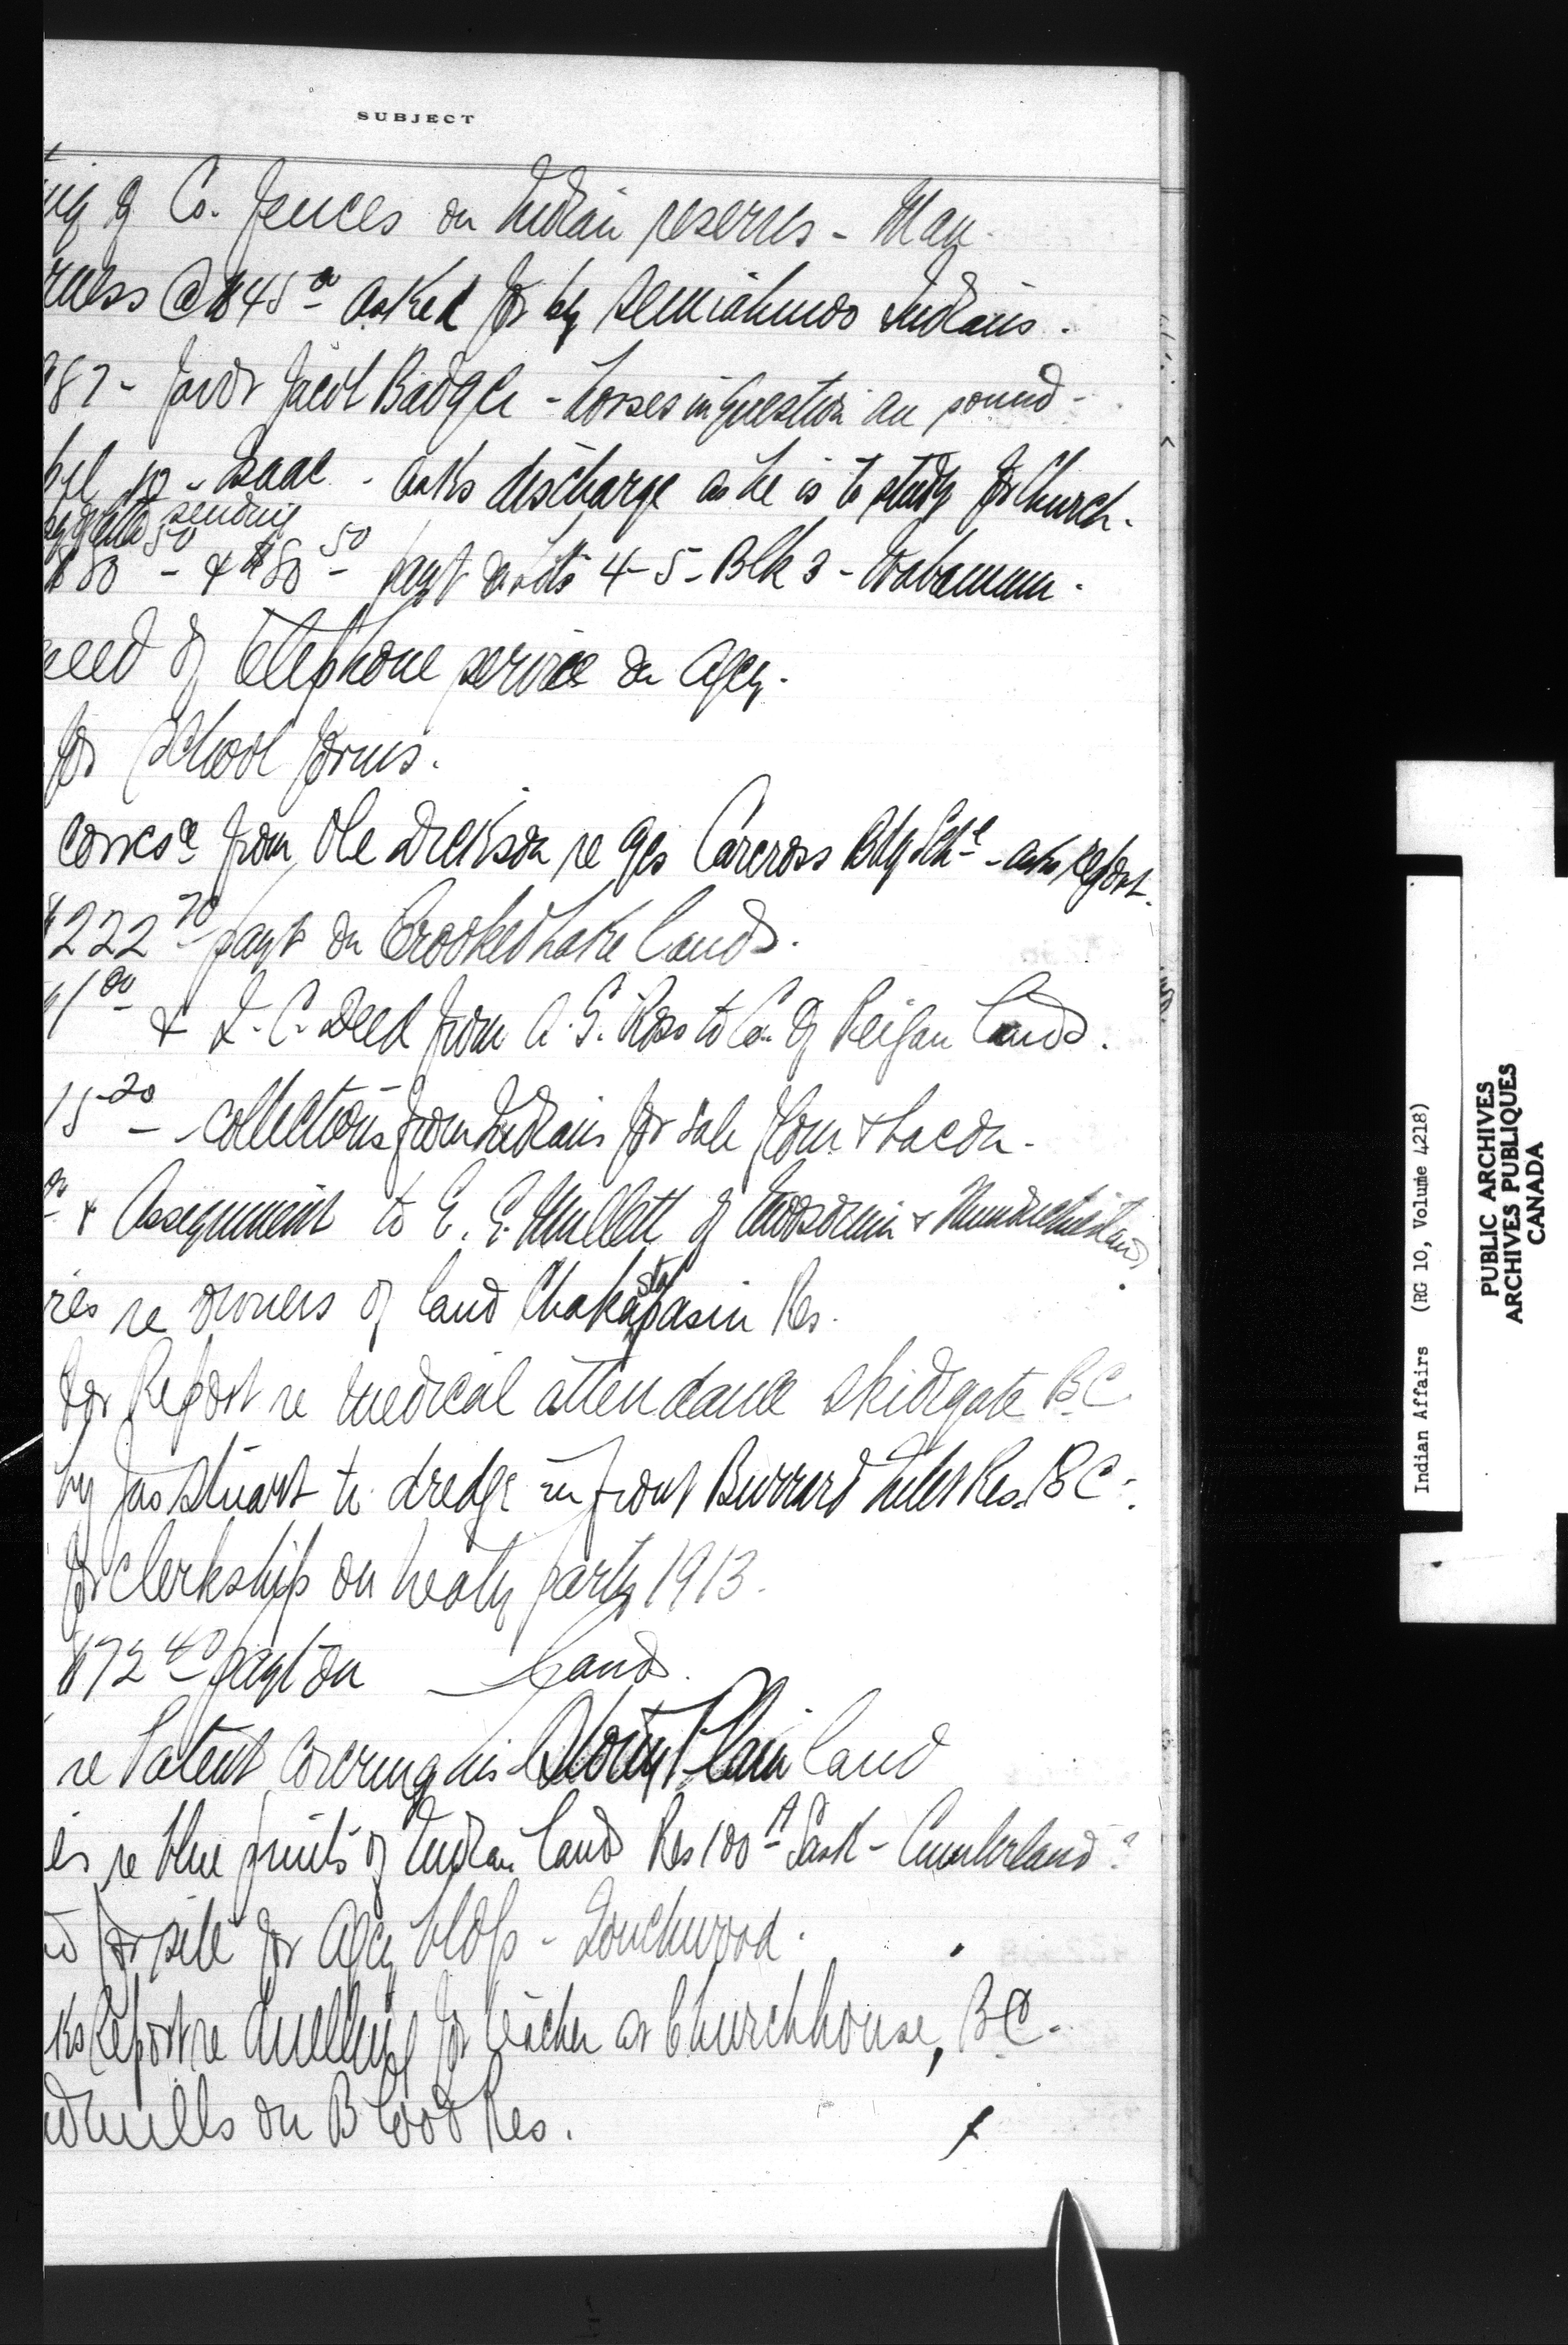 SUBJECT
of Co. fences on Indian reserves - Man.
@ $45.00 asked for by Semiahmoo Indians.
87 - favor Jacob Badger - horses in question are sound -
Isaac - asks discharge as he is to study for Church.
sending
$80.50 - & $80.50 - payt on Lots 4-5- Blk 3 - Wabamun.
need of telephone service on Agcy.
for school forms.
corresce from Ole Dickson re Carcross Bdg Schl - asks report.
$222.70 payt on Crooked Lake lands.
1.00 & Q. C. Deed from A. G. Ross to Co. of Peigan Lands.
15.20 - collections from Indians for sale flour & bacon.
& Assignment to E. E. Mullett of Moosomin &
re owners of land Chakastapasin Res.
for Report re medical attendance Skidegate B C
by Jas Stuart to dredge in front Burrard Inlet Res. B C.
for clerkship on treaty party 1913.
$72.40 payt on Lands.
re Patent covering his Stony Plain land
re blue prints of Indian land Res 100 A Sask - Cumberland
for site for Agcy bldgs - Touchwood.
Report re dwelling for teacher at Churchhouse, B C.
on Blood Res.
Indian Affairs (RG 10, Volume 4218)
PUBLIC ARCHIVES
ARCHIVES PUBLIQUES
CANADA